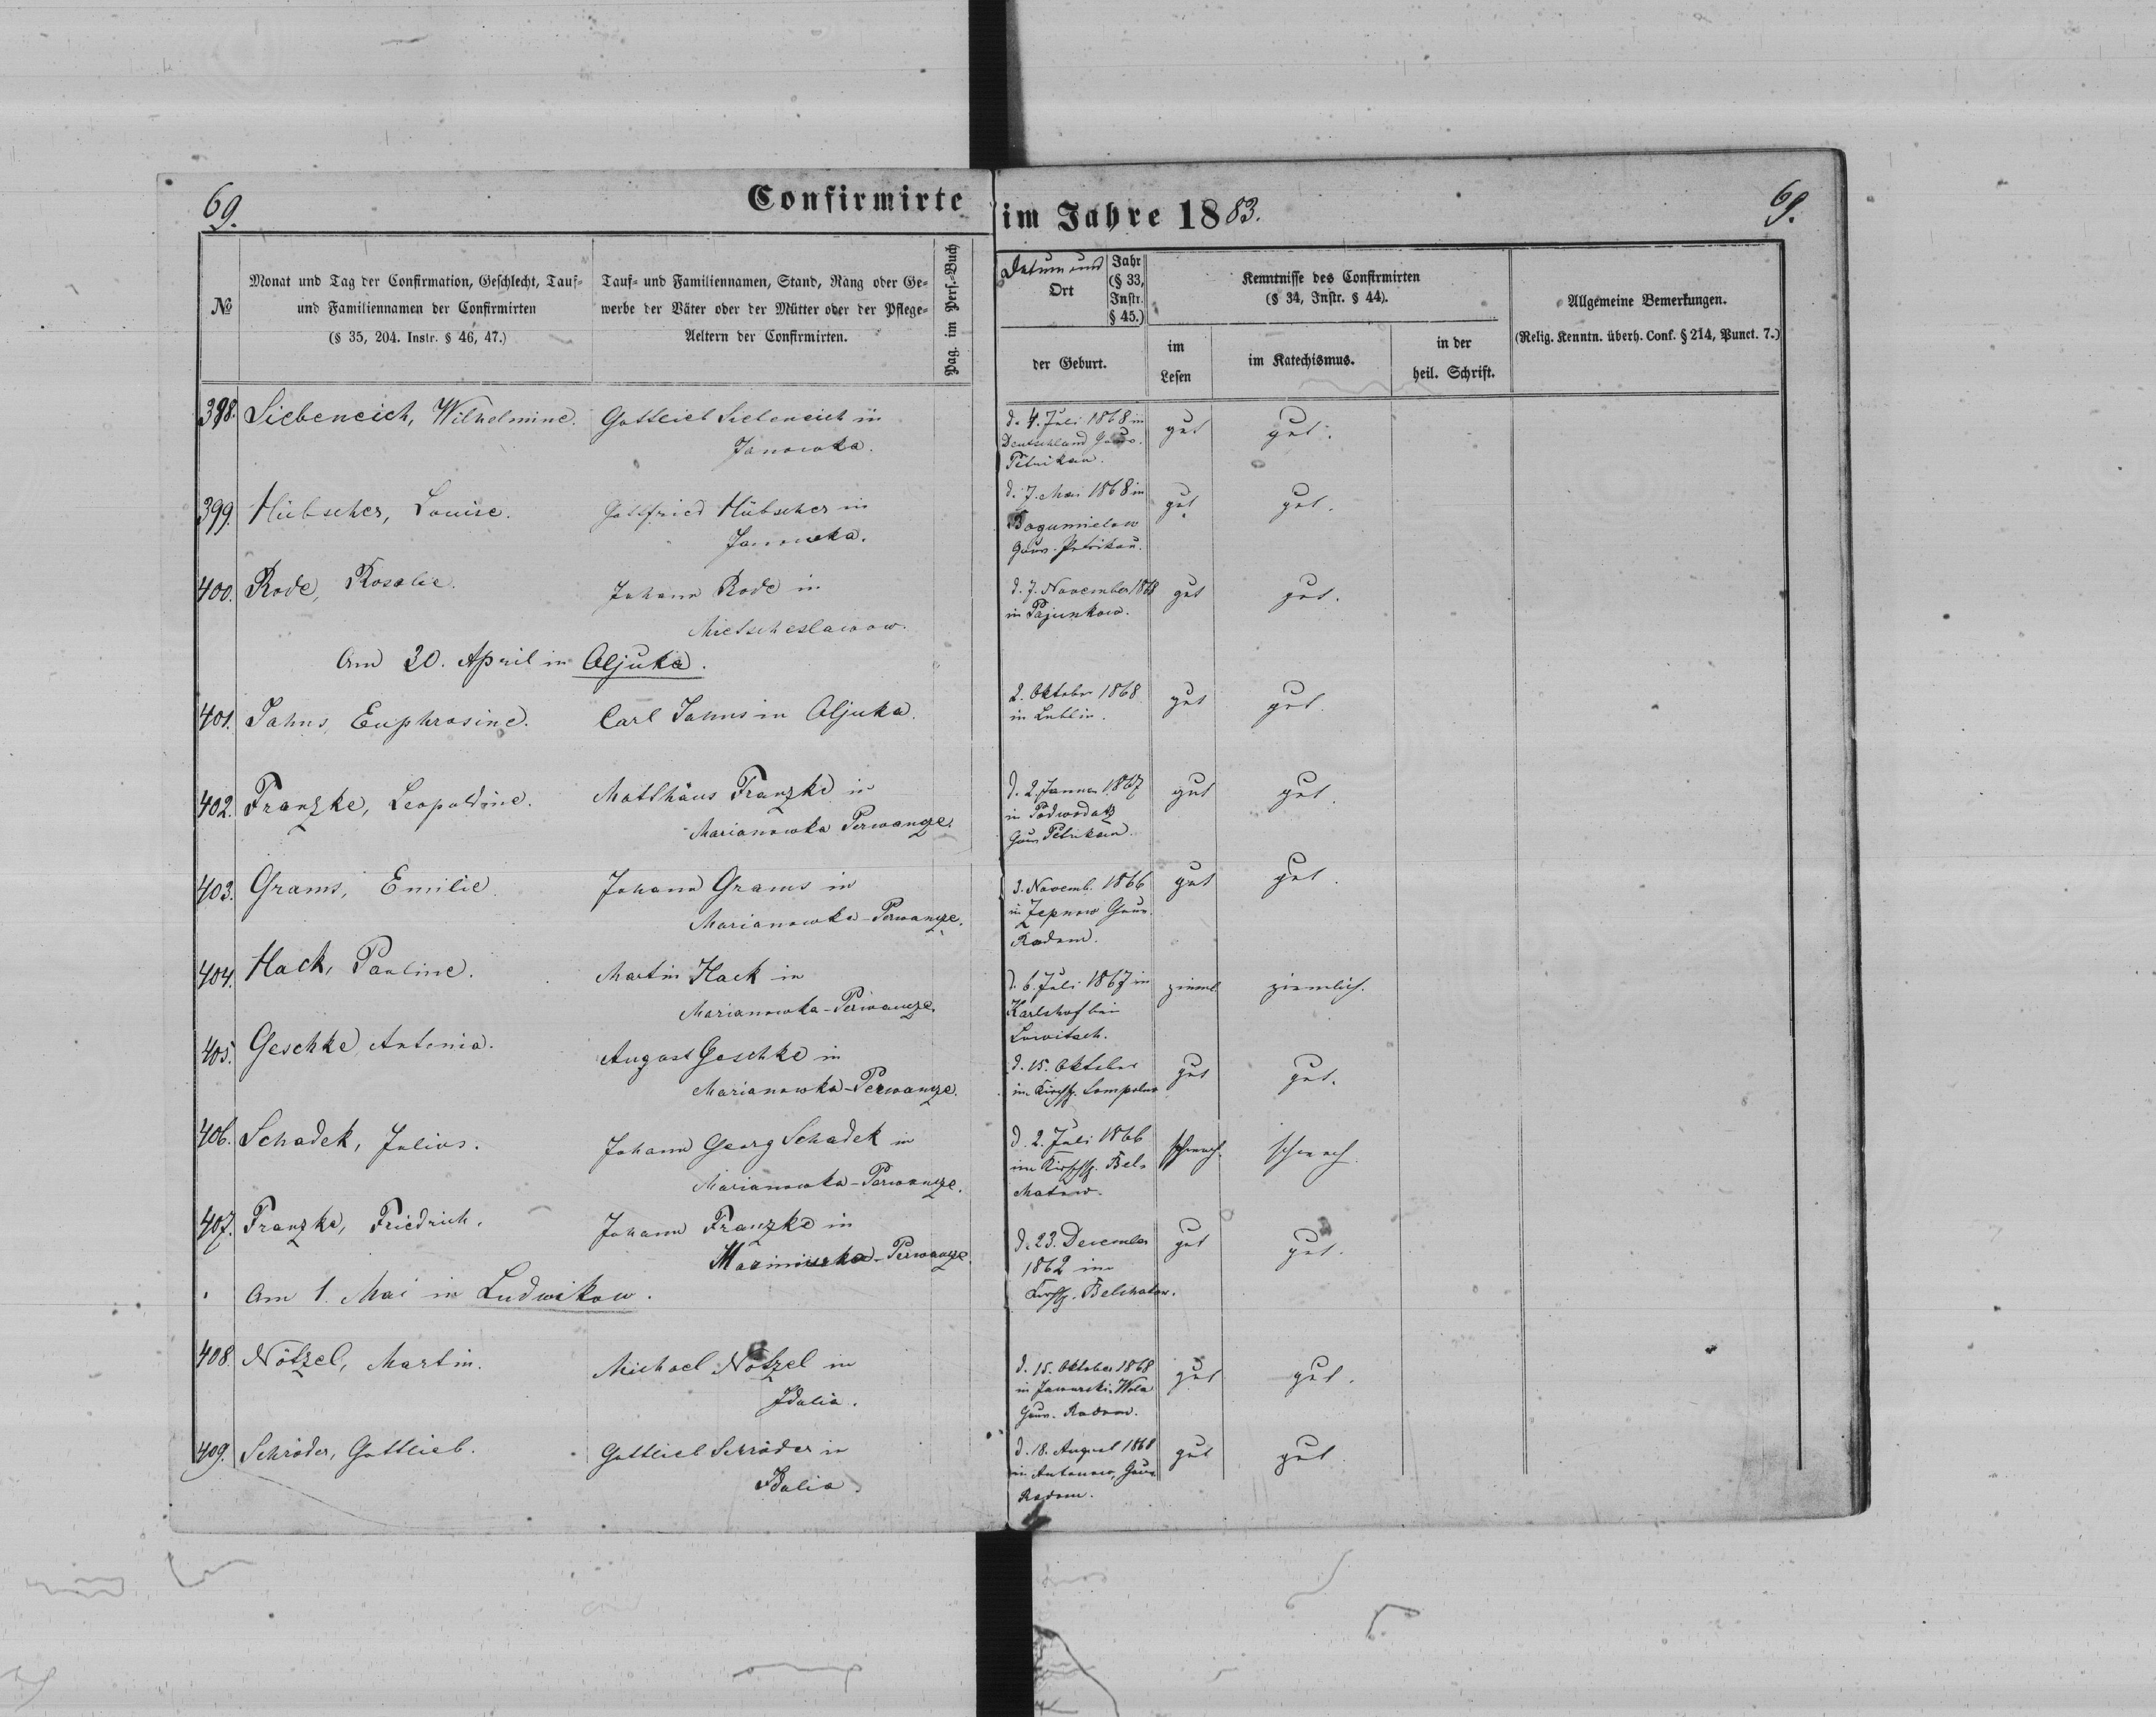 69.
Confirmirte im Jahre 1883.
69.
№
Monat und Tag der Confirmation, Geschlecht, Tauf-
und Familiennamen der Confirmirten
(§ 35, 204. Instr. § 46, 47.)
Tauf- und Familiennamen, Stand, Rang oder Ge-
werbe der Väter oder der Mütter oder der Pflege-
Aeltern der Confirmirten.
Pag. im Pers.-Buch
Datum und
Ort
Jahr
(§ 33,
Instr.
§ 45.)
der Geburt.
Kenntnisse des Confirmirten
(§ 34, Instr. § 44).
im
Lesen
im Katechismus.
in der
heil. Schrift.
Allgemeine Bemerkungen.
(Relig. Kenntn. überh. Conf. § 214, Punct. 7.)
398. Siebeneich, Wilhelmine. Gottlieb Siebeneich in
Janowka.
d. 4. Juli 1868 in
Deutschland Gouv.
Petrikau.
gut gut.
399. Hübscher, Louise. Gottfried Hübscher in
Janowka.
d. 7. Mai 1868 in
Bogumielow
Gouv. Petrikau.
gut gut.
400. Rode, Rosalie. Johann Rode in
Mietscheslawow.
d. 7. November 1868
in Pajunkow.
gut gut.
Am 30. April in Aljuka.
401. Jahns, Euphrosine. Carl Jahns in Aljuka.
2. Oktober 1868
in Lublin.
gut gut.
402. Franzke, Leopoldine. Matthäus Franzke in
Marianowka Perwanze.
d. 2. Januar 1867
in Podwodatz
Gouv Petrikau.
gut gut.
403. Grams, Emilie. Johann Grams in
Marianowka-Perwanze.
3. Novemb. 1866
in Zepnow Gouv.
Radom.
gut gut.
404. Hack, Pauline. Martin Hack in
Marianowka-Perwanze.
d. 6. Juli 1867 in
Karlshof bei
Lowitsch.
zieml ziemlich.
405. Geschke, Antonia. August Geschke in
Marianowka-Perwanze.
d. 15. Oktober
im Kirchsp. Sompolno
gut gut.
406. Schadek, Julius. Johann Georg Schadek in
Marianowka-Perwanze.
d. 2. Juli 1866
im Kirchsp. Bel-
chatow.
schwach. schwach.
407. Franzke, Friedrich. Johann Franzke in
-Perwanze.
d. 23. December
1862 im
Kirchsp. Belchatow.
gut gut.
Am 1. Mai in Ludwikow.
408. Nötzel, Martin. Michael Nötzel in
Idalia.
d. 15. Oktober 1868
in Jaworski-Wola
Gouv. Radom.
gut gut.
409. Schröder, Gottlieb. Gottlieb Schröder in
Idalia.
d. 18. August 1868
in Antonow, Gouv
Radom.
gut gut.